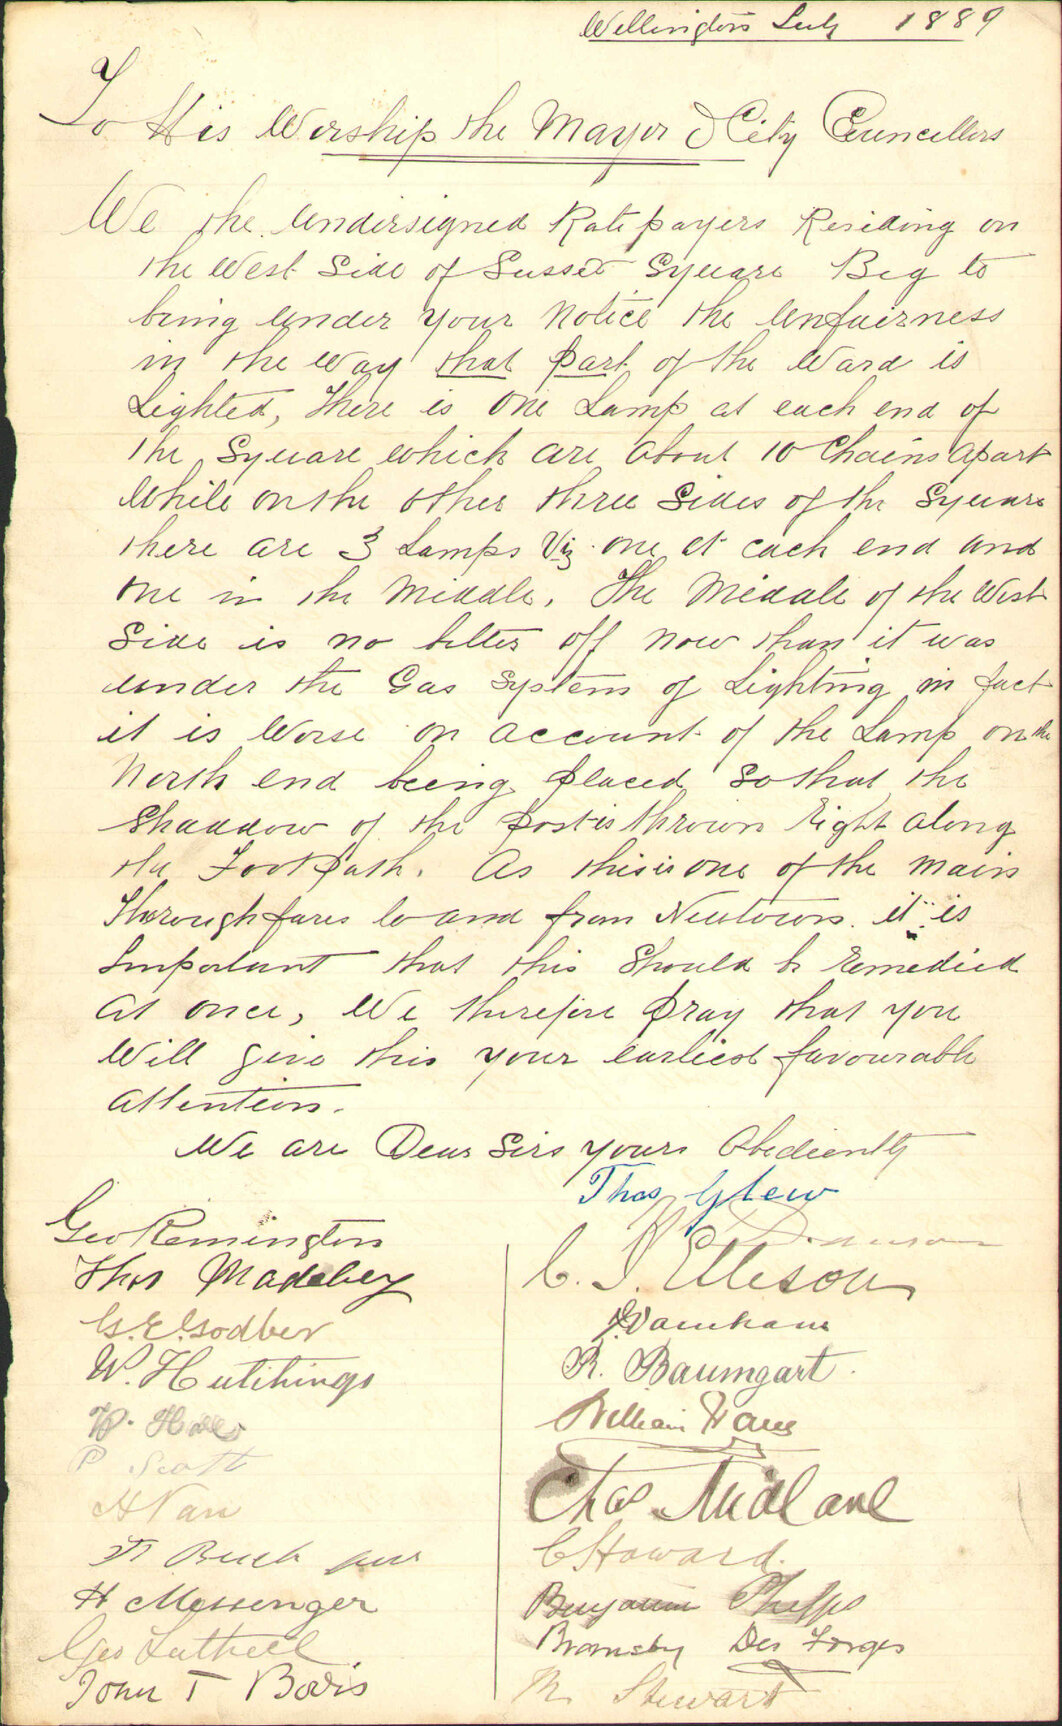 Wellington July 1889
To His Worship the Mayor & City Councellors
We the Undersigned Ratepayers Residing on
the West Side of Sussex Square Beg to
bring under your Notice the Unfairness
in the Way that part of the Ward is
Lighted, There is One Lamp at each end of
the Square which are About 10 Chains apart
While on the other three Sides of the Square
there are 3 Lamps Viz. one at each end and
one in the Middle. The Middle of the West
Side is no better off now than it was
under the Gas System of Lighting in fact
it is Worse on account of the Lamp on the
North end being placed so that the
Shaddow of the post is thrown Right along
the FootPath. As this is one of the main
Thoroughfares to and from Newtown it is
Important that this Should be Remedied
at once, We therefore pray that you
Will give this your earliest favourable
attention.
We are Dear Sirs yours Obediently
Thos Glew
Geo Remington
Thos
C. J. Ellison
G. E. Godber
W. Hutchings
R. Baumgart
W.
William
P Scott
Chas Midlane
H
C Howard.
Buck
H Messenger
Benjamin Phelps
Geo Luttrell
Bramsby Des Forges
John T Bovis
Stewart